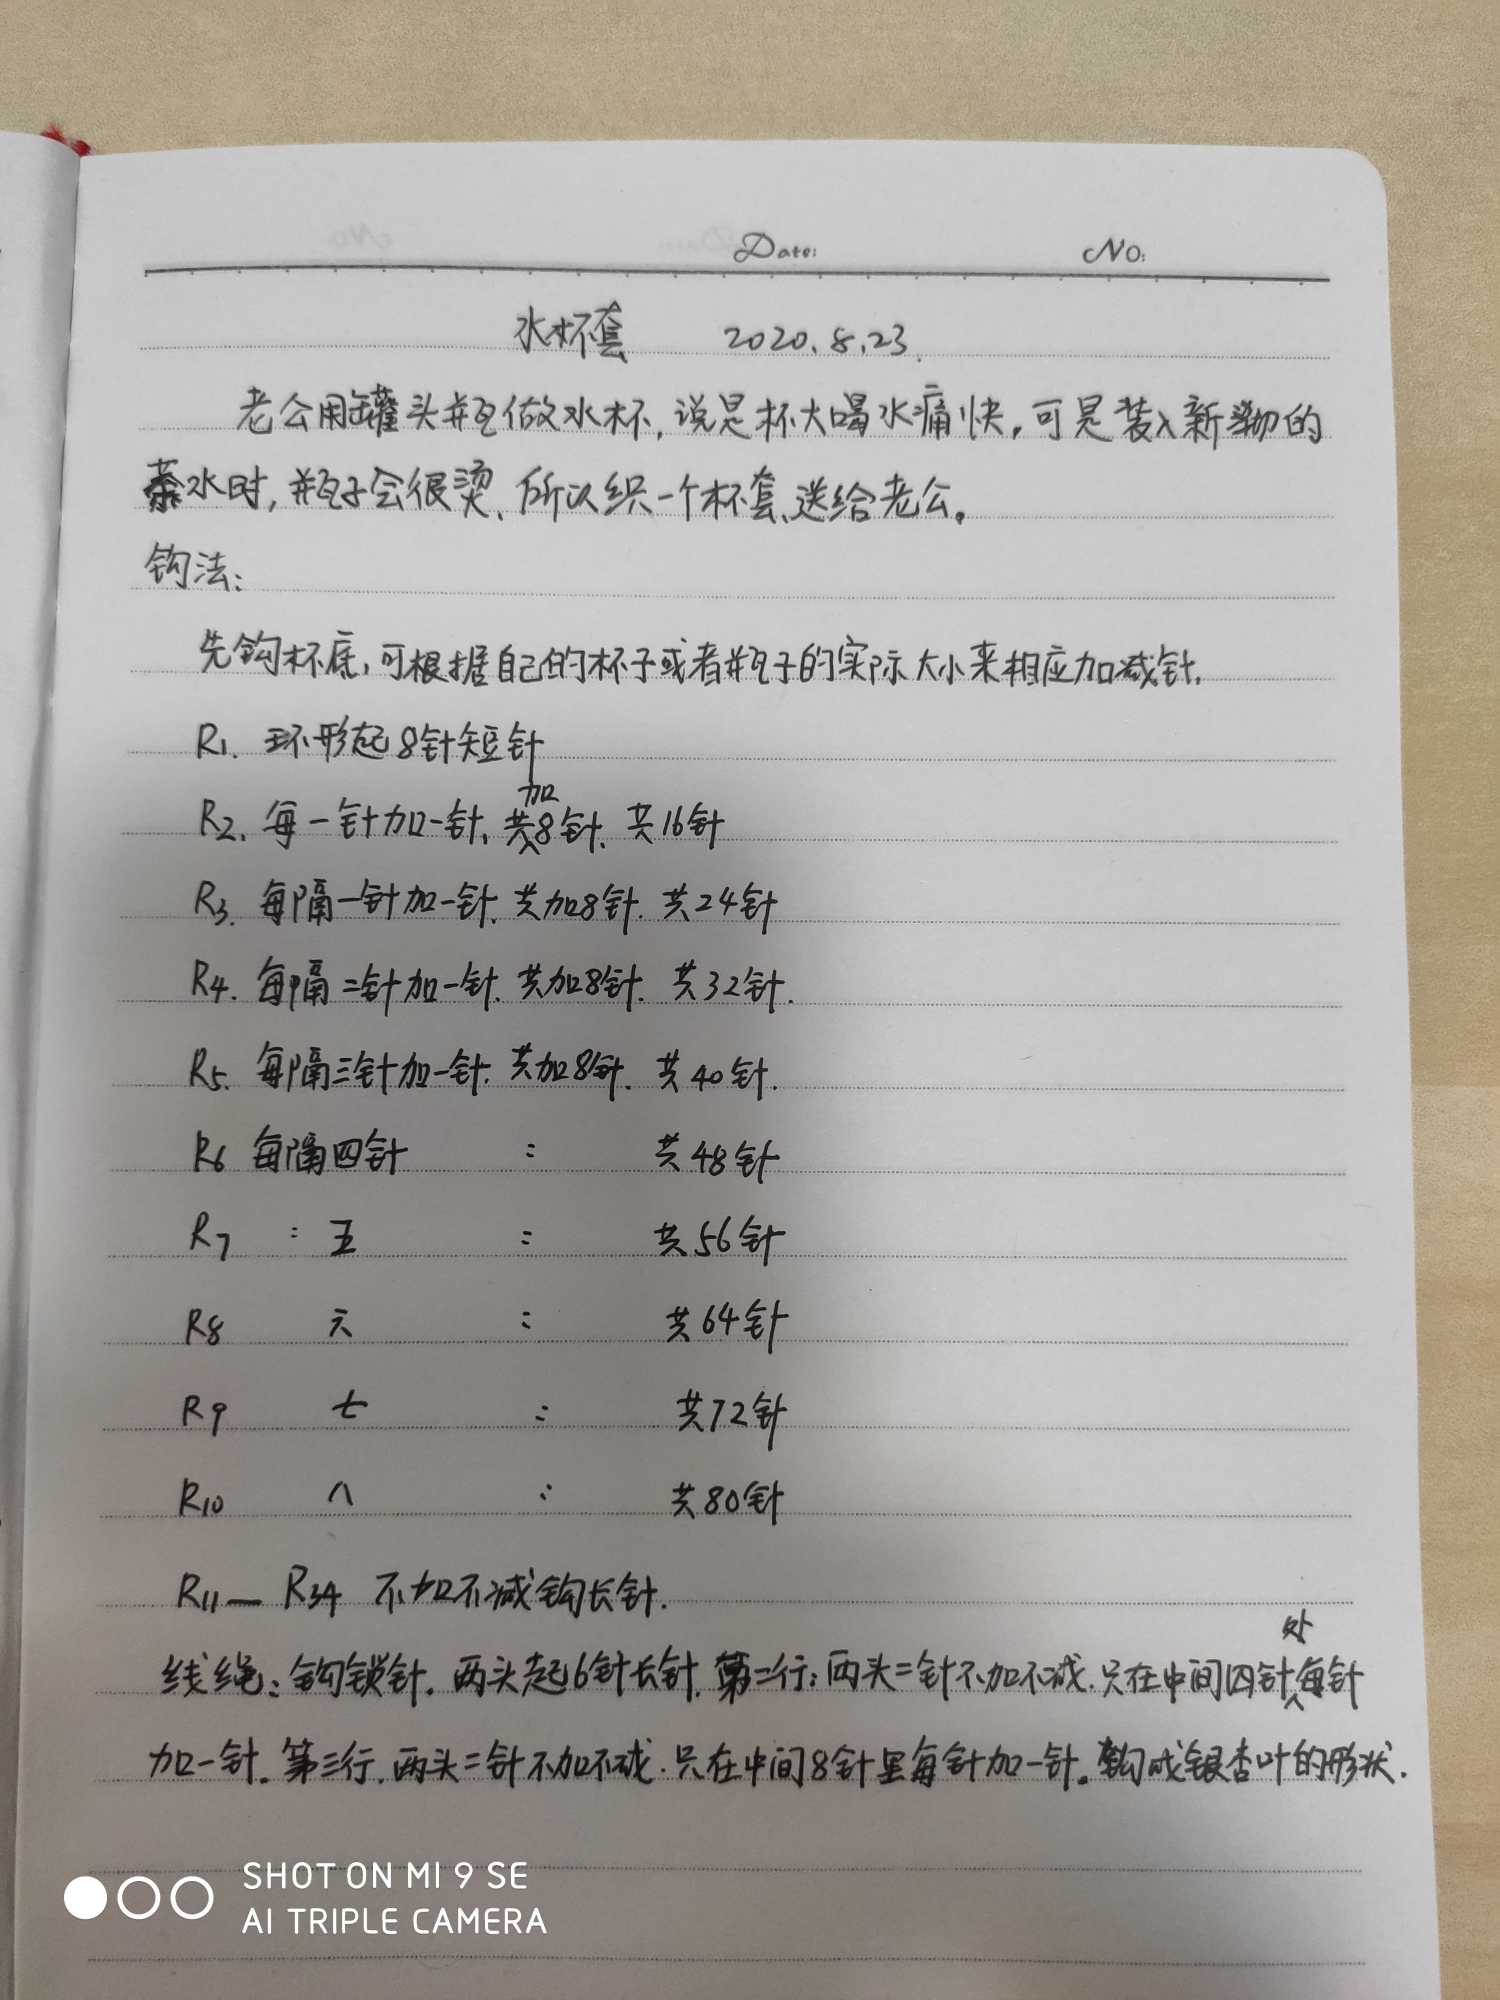 Date: No:
水杯套 2020.8.23.
老公用罐头瓶做水杯,说是杯大喝水痛快,可是装入新沏的
茶水时,瓶子会很烫、所以织一个杯套、送给老公。
钩法:
先钩杯底,可根据自己的杯子或者瓶子的实际大小来相应加减针.
R1. 环形起8针短针
R2. 每一针加一针、共加8针、共16针
R3. 每隔一针加一针、共加8针、共24针
R4. 每隔二针加一针、共加8针、共32针.
R5. 每隔三针加一针、共加8针、共40针.
R6 每隔四针 : 共48针
R7 : 五 : 共56针
R8 六 : 共64针
R9 七 : 共72针
R10 八 : 共80针
R11— R34 不加不减钩长针.
线绳:钩锁针。两头起6针长针、第二行:两头二针不加不减.只在中间四针处每针
加一针。第三行、两头二针不加不减.只在中间8针里每针加一针。钩成银杏叶的形状.
SHOT ON MI 9 SE
AI TRIPLE CAMERA